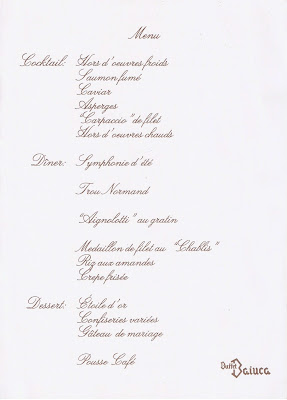 Menu
Cocktail: Hors d'oeuvres froids
Saumon fumé
Caviar
Asperges
"Carpaccio" de filet
Hors d'oeuvres chauds
Dîner: Symphonie d'été
Trou Normand
"Aignolotti" au gratin
Medaillon de filet au "Chablis"
Riz aux amandes
Crepe frisée
Dessert: Étoile d'or
Confiseries variées
Gâteau de mariage
Pousse Café
Buffet Baiuca